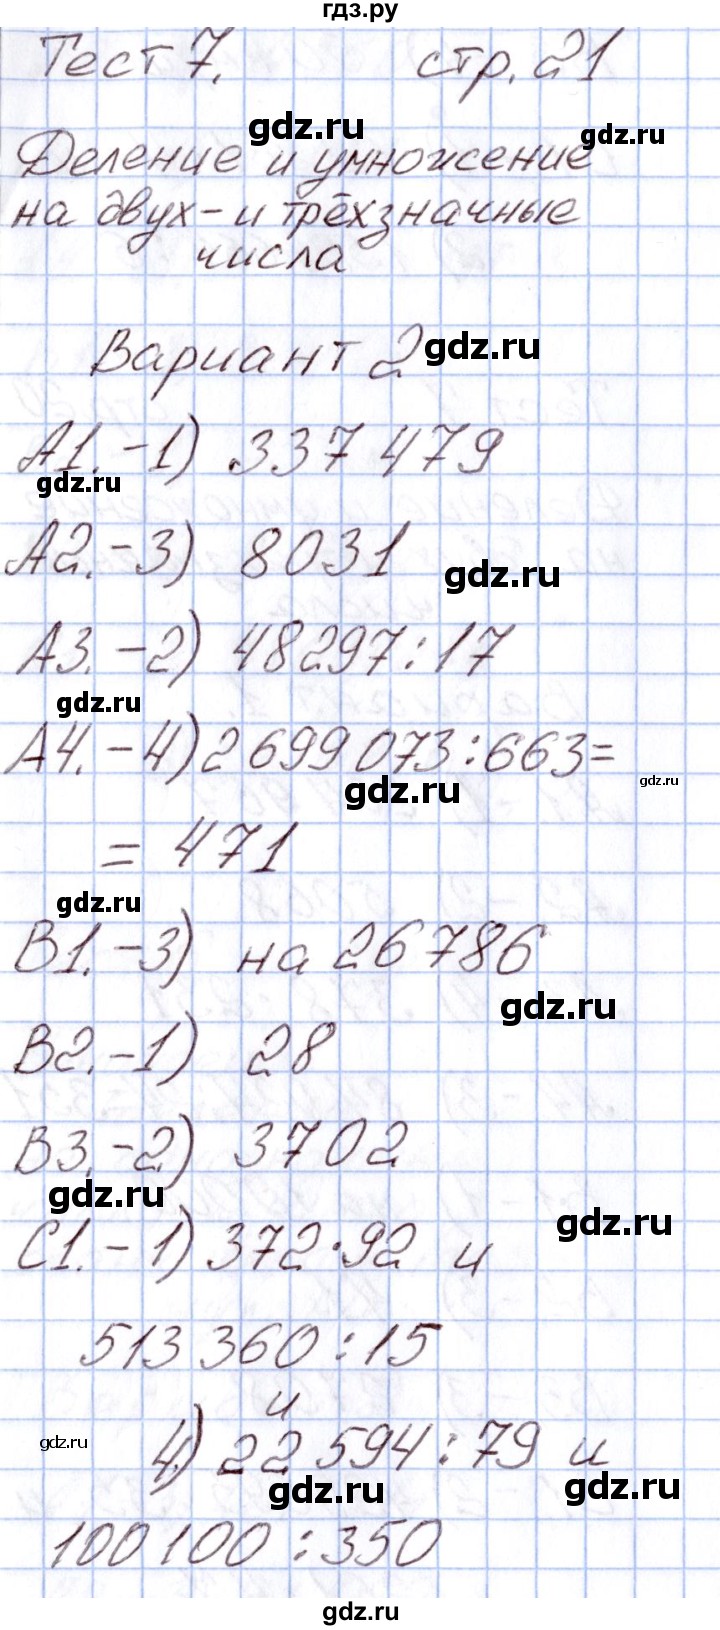 гдз.ру
Тест 7. стр. 21
gdz.ru
gdz.ru
Деление и умножение
на двух- и трёхзначные
числа
Вариант 2
gdz.ru
А1.-1) 337 479
gdz.ru
А2.-3) 8031
gdz.ru
А3.-2) 48297:17
gdz.ru
А4.-4) 2 699 073:663=
gdz.ru
gdz.ru
= 471
gdz.ru
В1.-3) на 26 786
gdz.ru
В2.-1) 28
В3.-2) 3702
gdz.ru
gdz.ru
С1.-1) 372·92 и
513 360:15
и
4) 22 594:79 и
gdz.ru
gdz.ru
gdz.ru
100 100:350
gdz.ru